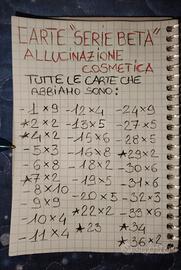 CARTE "SERIE BETA"
ALLUCINAZIONE
COSMETICA
TUTTE LE CARTE CHE
ABBIAMO SONO:
- 1 x 9
* 2 x 2
* 4 x 2
- 5 x 3
- 6 x 8
* 7 x 2
- 8 x 10
- 9 x 9
- 10 x 4
- 11 x 4
- 12 x 4
- 13 x 2
- 15 x 6
- 16 x 8
- 18 x 2
- 19 x 5
- 20 x 5
* 22 x 2
* 23
- 24 x 9
- 27 x 5
- 28 x 5
* 29 x 2
- 30 x 6
- 31 x 6
- 32 x 3
- 33 x 6
* 34
* 36 x 2